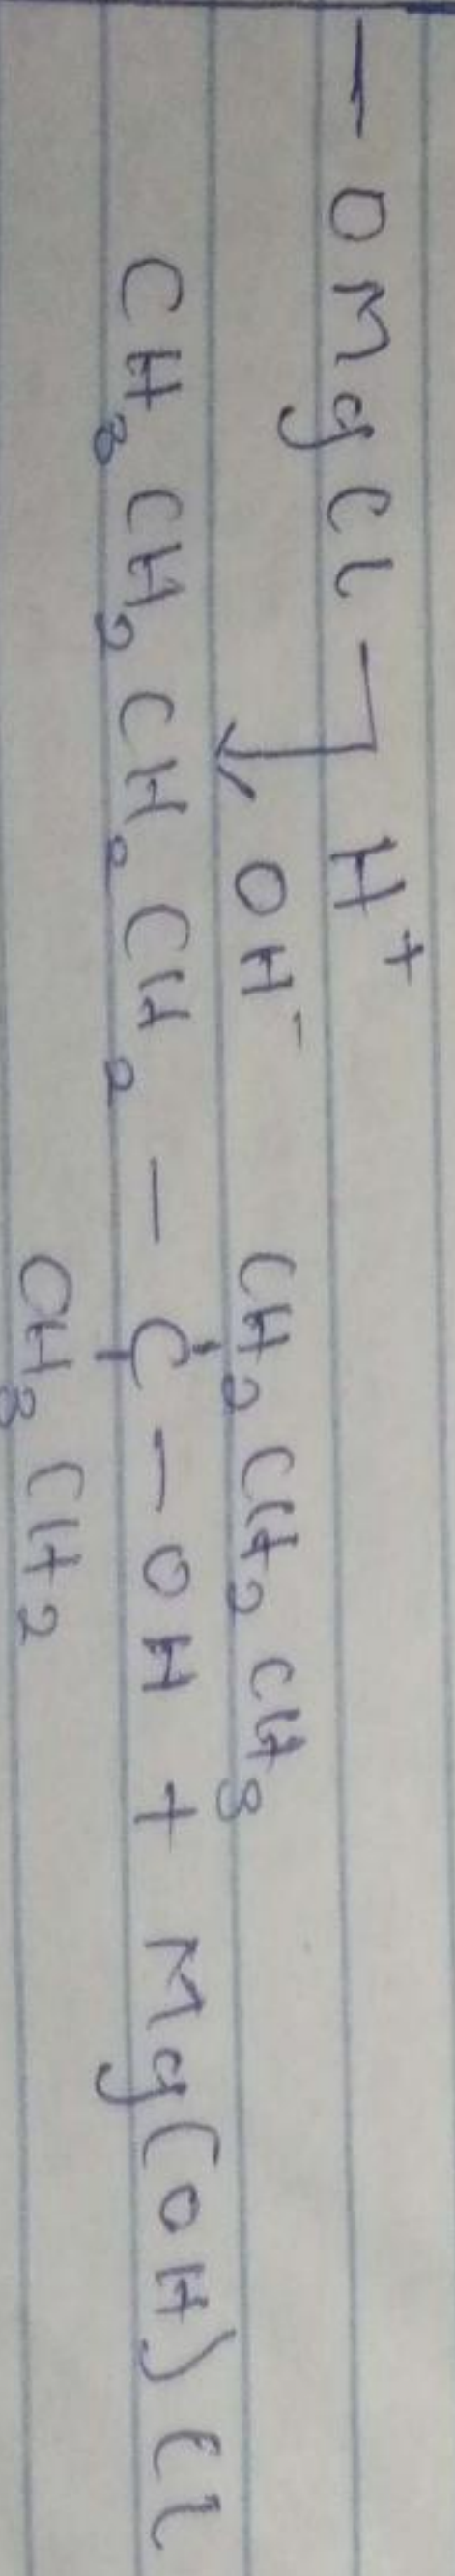 — OMgCl ⌉ H⁺
↓ OH⁻
CH₂CH₂CH₃
CH₃CH₂CH₂CH₂ — C — OH + Mg(OH)Cl
CH₃CH₂